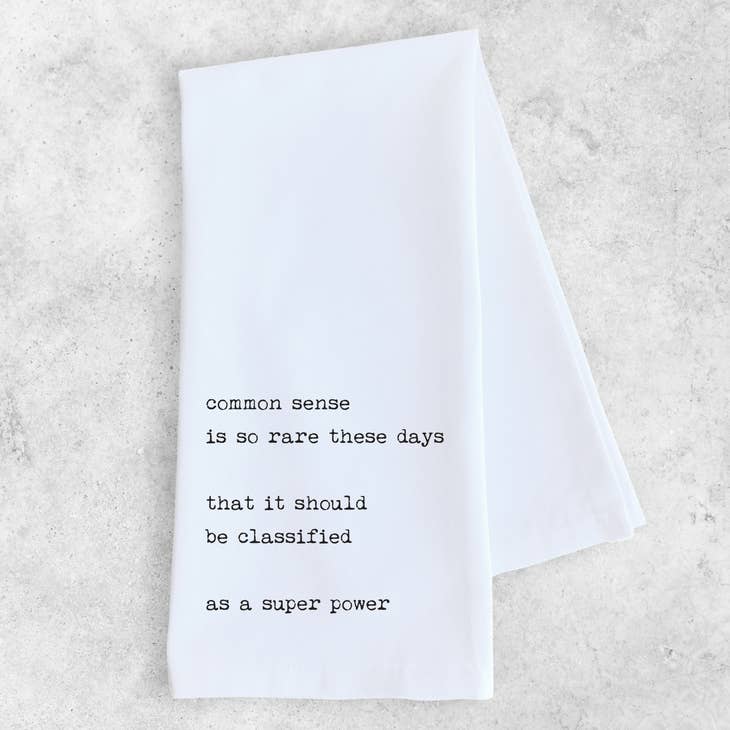 common sense
is so rare these days
that it should
be classified
as a super power